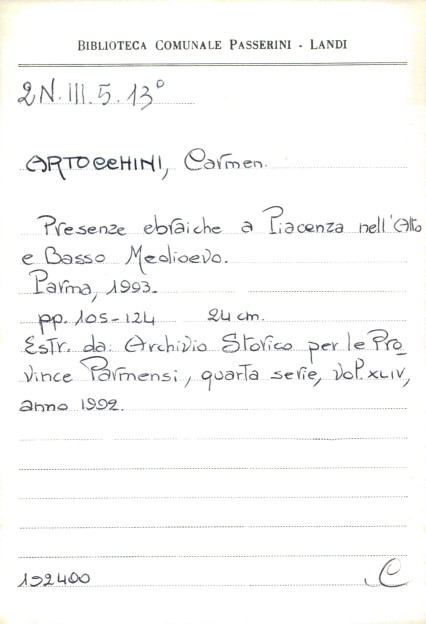 BIBLIOTECA COMUNALE PASSERINI - LANDI
2N.III.5.13°
ARTOCCHINI, Carmen.
Presenze ebraiche a Piacenza nell'Alto
e Basso Medioevo.
Parma, 1993.
pp. 105-124 24 cm.
Estr. da: Archivio Storico per le Pro_
vince Parmensi, quarta serie, vol. XLIV,
anno 1992.
192400 C